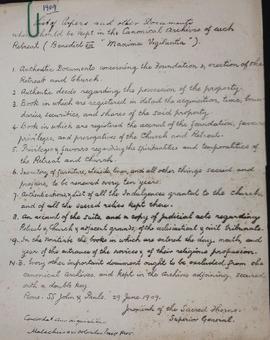 1909
List of Papers and other Documents
which should be kept in the Canonical Archives of each
Retreat (Benedict XIII "Maxima Vigilantia").
1. Authentic Documents concerning the Foundation & erection of the
Retreat and Church.
2. Authentic deeds regarding the possession of the property.
3. Book in which are registered in detail the acquisition, time, boun-
daries, securities, and shares of the said property.
4. Book in which are registered the account of the foundation, favours
privileges, and prerogatives of the Church and Retreat.
5. Privileges & favors regarding the spiritualities and temporalities of
the Retreat and Church.
6. Inventory of furniture, and all other things sacred and
profane, to be renewed every ten years.
7. Authentic list of all the Indulgences granted to the Church,
and of all the sacred relics kept there.
8. An account of the suits, and a copy of judicial acts regarding
Retreat & Church & adjacent grounds, of the ecclesiastical & civil tribunals.
9. In the novitiate the books in which are entered the day, month, and
year of the entrance of the novices, & of their religious profession.
N.B. Every other important document ought to be excluded from the
canonical archives and kept in the Archives adjoining, secured
with a double key
Rome. SS. John & Paul's. 29 June 1909.
Jeremiah of the Sacred Thorns.
Superior General.